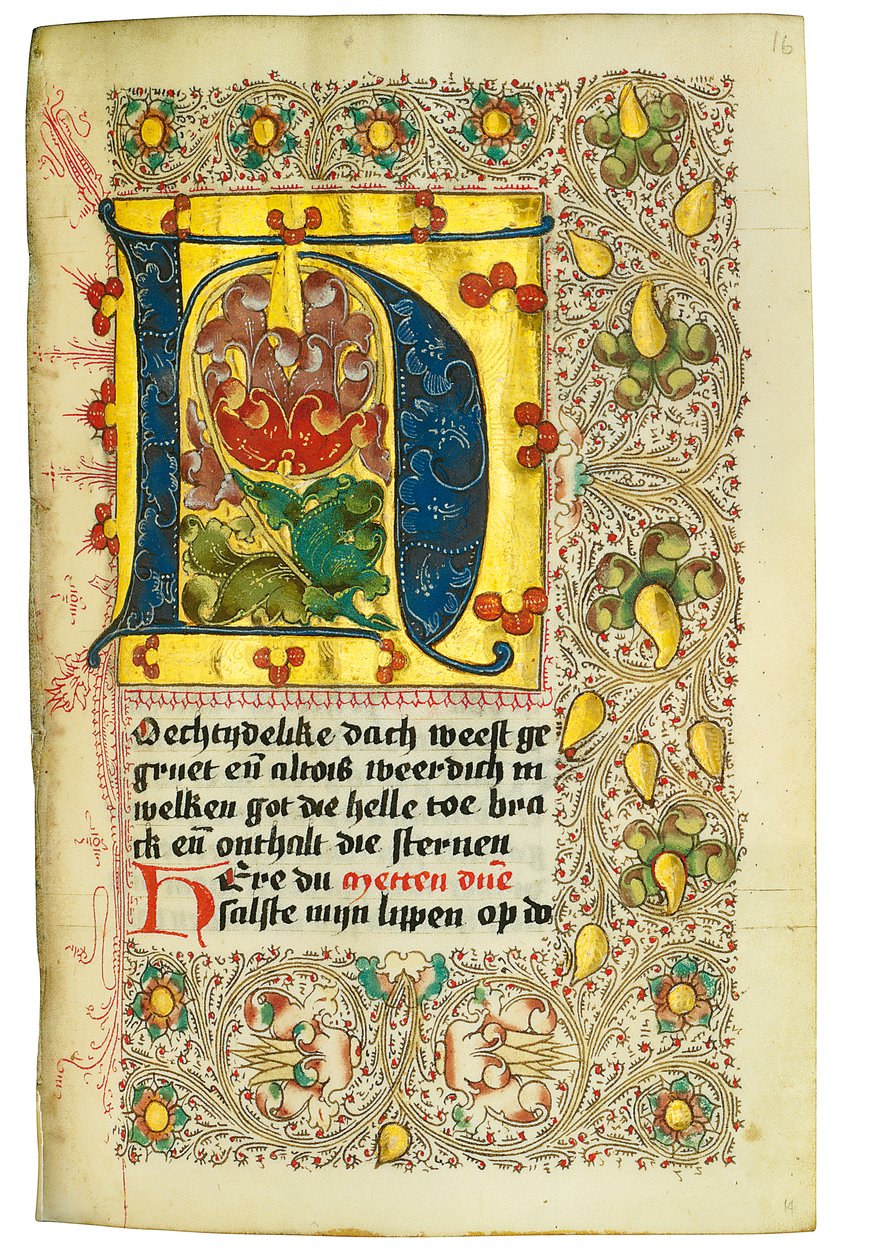 16
H
Oechtijdelike dach weest ge
gruet en̄ altois weerdich in
welken got die helle toe bra
ck en̄ onthalt die sternen
HEre du Metten
salste mijn lippen op do
14